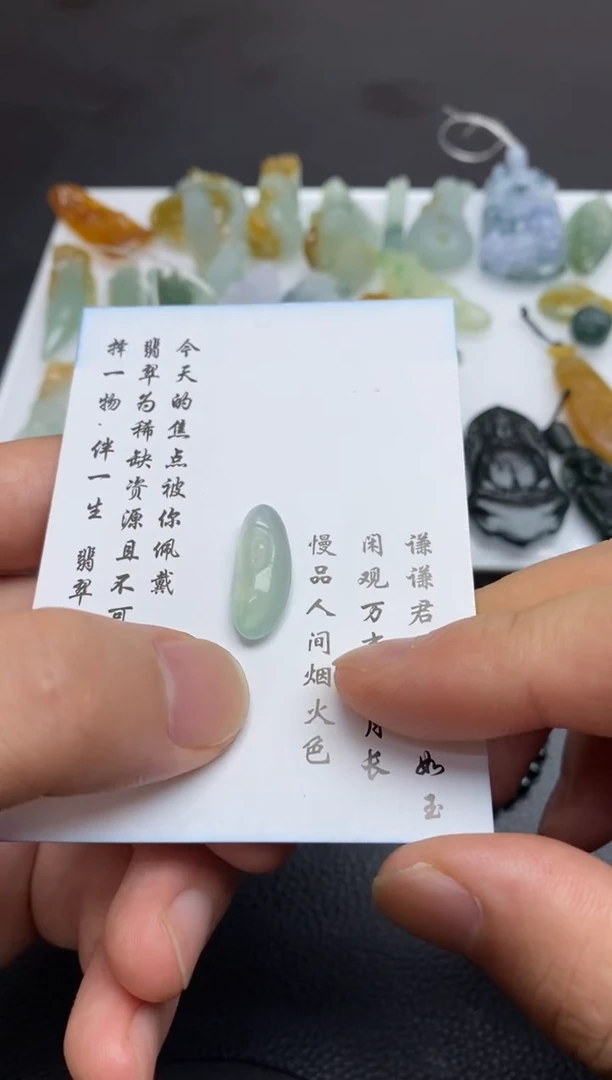 谦谦君如玉
闲观万月长
慢品人间烟火色
今天的焦点被你佩戴
翡翠为稀缺资源且不可
择一物·伴一生 翡翠